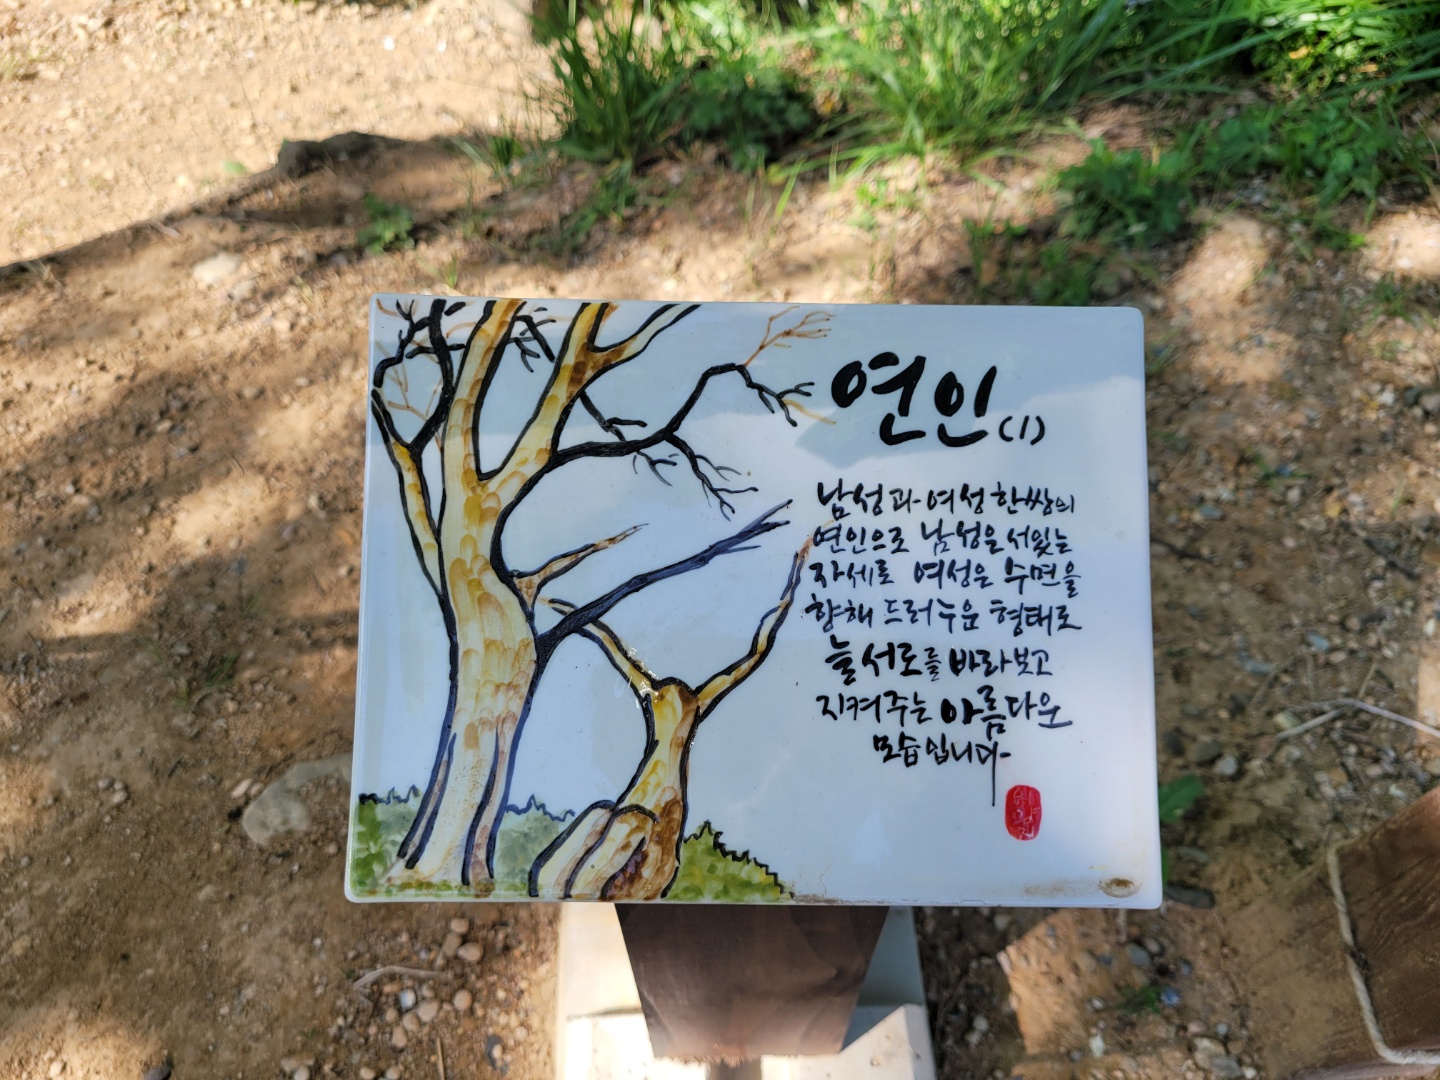 연인(1)
남성과 여성 한쌍의
연인으로 남성은 서있는
자세로 여성은 수면을
향해 드러누운 형태로
늘 서로를 바라보고
지켜주는 아름다운
모습입니다